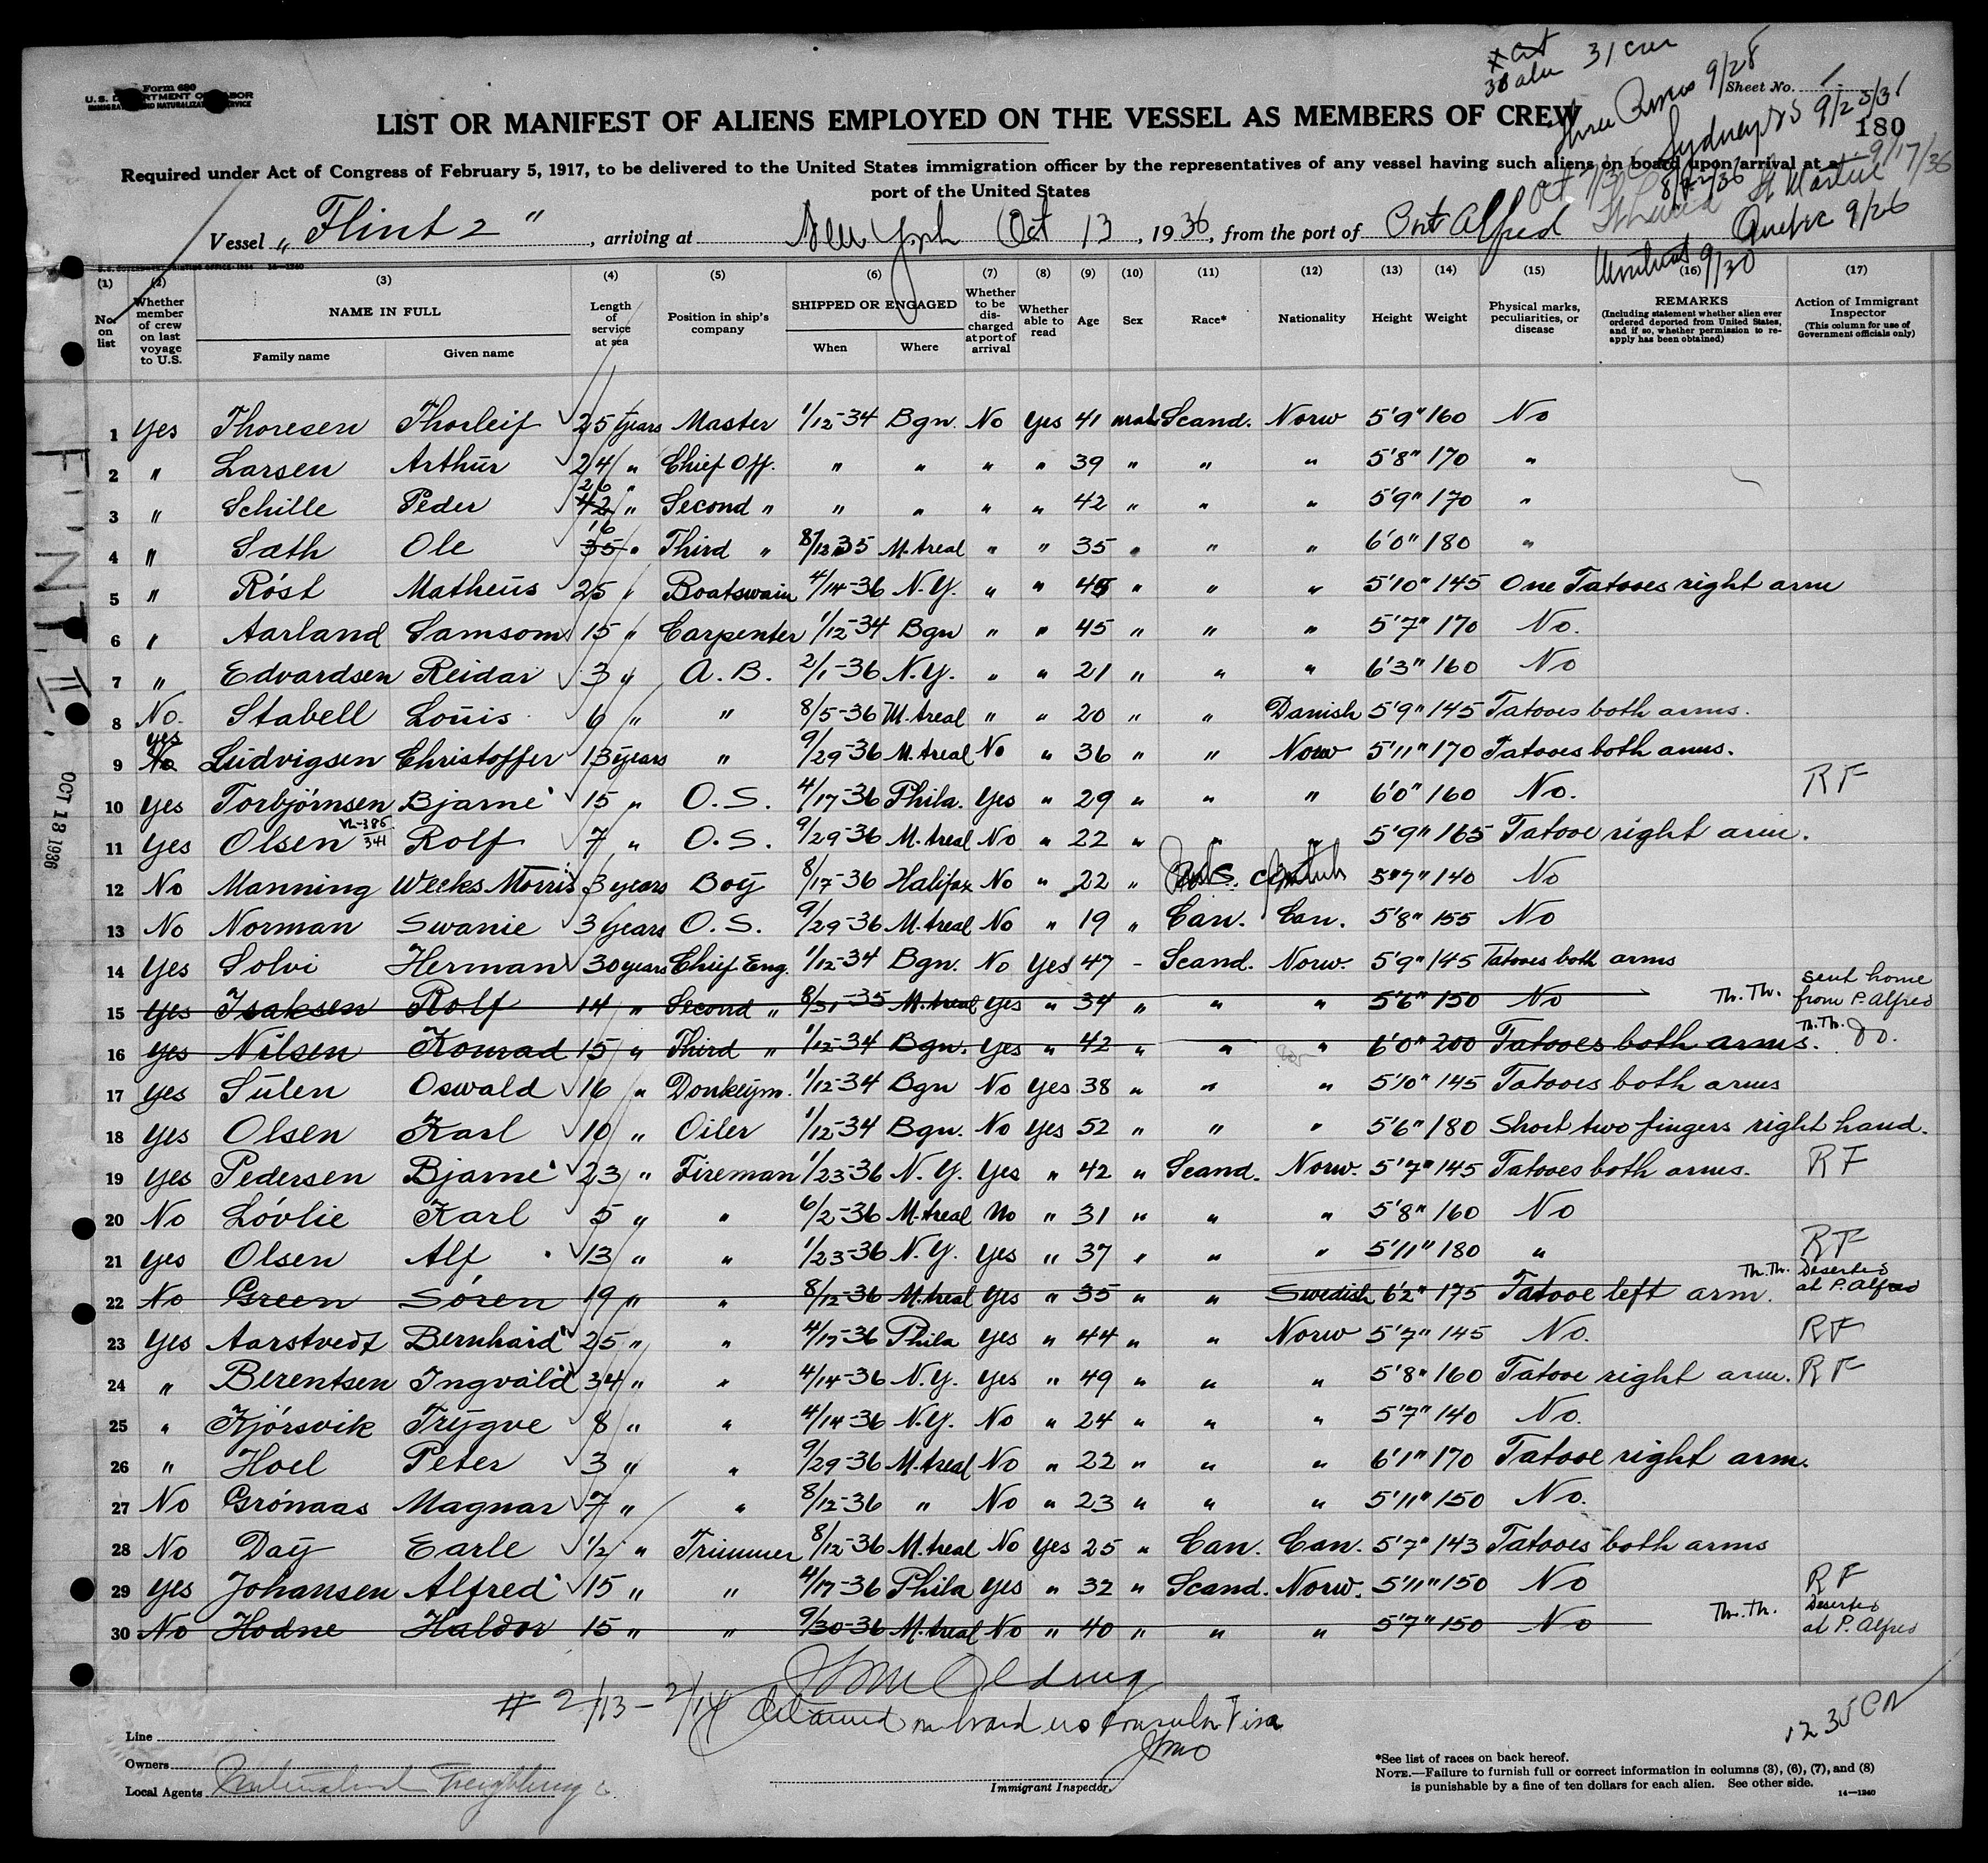 Form 680
U. S. DEPARTMENT OF LABOR
IMMIGRATION AND NATURALIZATION SERVICE
31 crew
Three Rivers 9/28
Sheet No. 1
LIST OR MANIFEST OF ALIENS EMPLOYED ON THE VESSEL AS MEMBERS OF CREW
Sydney
180
Required under Act of Congress of February 5, 1917, to be delivered to the United States immigration officer by the representatives of any vessel having such aliens on board upon arrival at a
port of the United States
9/17/36
Vessel „ Flint 2 ", arriving at New York Oct 13, 1936, from the port of Port Alfred
Quebec 9/26
Montreal 9/30
U. S. GOVERNMENT PRINTING OFFICE: 1934 14—1240
(1) (2) (3) (4) (5) (6) (7) (8) (9) (10) (11) (12) (13) (14) (15) (16) (17)
No. on list | Whether member of crew on last voyage to U.S. | NAME IN FULL | Family name | Given name | Length of service at sea | Position in ship's company | SHIPPED OR ENGAGED | When | Where | Whether to be discharged at port of arrival | Whether able to read | Age | Sex | Race* | Nationality | Height | Weight | Physical marks, peculiarities, or disease | REMARKS (Including statement whether alien ever ordered deported from United States, and if so, whether permission to reapply has been obtained) | Action of Immigrant Inspector (This column for use of Government officials only)
1 Yes Thoresen Thorleif 25 Years Master 1/12-34 Bgn. No Yes 41 male Scand. Norw 5'9" 160 No
2 " Larsen Arthur 24 " Chief Off. " " " " 39 " " " 5'8" 170 "
3 " Schille Peder 42 26 " Second " " " " " 42 " " " 5'9" 170 "
4 " Sæth Ole 35 16 " Third " 8/12 35 M.treal " " 35 " " " 6'0" 180 "
5 " Röst Matheus 25 " Boatswain 4/14-36 N.Y. " " 45 " " " 5'10" 145 One Tatooes right arm
6 " Aarland Samsom 15 " Carpenter 1/12-34 Bgn " " 45 " " " 5'7" 170 No.
7 " Edvardsen Reidar 3 " A. B. 2/1-36 N.Y. " " 21 " " " 6'3" 160 No
8 No. Stabell Louis 6 " " 8/5-36 M.treal " " 20 " " Danish 5'9" 145 Tatooes both arms.
9 No yes Ludvigsen Christoffer 13 years " 9/29-36 M.treal No " 36 " " Norw 5'11" 170 Tatooes both arms.
10 Yes Torbjörnsen Bjarne 15 " O. S. 4/17-36 Phila. Yes " 29 " " " 6'0" 160 No. RF
11 Yes Olsen Rolf 7 " O. S. 9/29-36 M.treal No " 22 " " " 5'9" 165 Tatooe right arm.
12 No Manning Weeks Morris 3 years Boy 8/17-36 Halifax No " 22 " 5'7" 140 No
13 No Norman Swanie 3 Years O. S. 9/29-36 M.treal No " 19 " Can. Can. 5'8" 155 No
14 Yes Solvi Herman 30 years Chief Eng. 1/12-34 Bgn. No Yes 47 - Scand. Norw. 5'9" 145 Tatooes both arms
15 Yes Isaksen Rolf 14 " Second " 8/31-35 M.treal Yes " 34 " " " 5'6" 150 No Th. Th. sent home from P. Alfred
16 Yes Nilsen Konrad 15 " Third " 1/12-34 Bgn. Yes " 42 " " " 6'0" 200 Tatooes both arms. Th. Th. Do.
17 Yes Sulen Oswald 16 " Donkeym. 1/12-34 Bgn No Yes 38 " " " 5'10" 145 Tatooes both arms
18 Yes Olsen Karl 10 " Oiler 1/12-34 Bgn. No Yes 52 " " " 5'6" 180 Short two fingers right hand.
19 Yes Pedersen Bjarne 23 " Fireman 1/23-36 N. Y. Yes " 42 " Scand. Norw. 5'7" 145 Tatooes both arms. RF
20 No Lövlie Karl 5 " " 6/2-36 M.treal No " 31 " " " 5'8" 160 No
21 Yes Olsen Alf 13 " " 1/23-36 N.Y. Yes " 37 " " " 5'11" 180 " RF
22 No Green Sören 19 " " 8/12-36 M.treal Yes " 35 " " Swedish 6'2" 175 Tatooe left arm. Th. Th. Deserted at P. Alfred
23 Yes Aarstvedt Bernhard 25 " " 4/17-36 Phila Yes " 44 " " Norw 5'7" 145 No. RF
24 " Berentsen Ingvald 34 " " 4/14-36 N.Y. Yes " 49 " " " 5'8" 160 Tatooe right arm. RF
25 " Kjörsvik Trygve 8 " " 4/14-36 N.Y. No " 24 " " " 5'7" 140 No.
26 " Hoel Peter 3 " " 9/29-36 M.treal No " 22 " " " 6'1" 170 Tatooe right arm.
27 No Grönaas Magnar 7 " " 8/12-36 " No " 23 " " " 5'11" 150 No.
28 No Day Earle 1/2 " Trimmer 8/12-36 M.treal No Yes 25 " Can. Can. 5'7" 143 Tatooes both arms
29 Yes Johansen Alfred 15 " " 4/17-36 Phila Yes " 32 " Scand. Norw. 5'11" 150 No RF
30 No Hodne Haldor 15 " " 9/30-36 M.treal No " 40 " " " 5'7" 150 No Th. Th. Deserted at P. Alfred
OCT 13 1936
# 2/13 - 2/14 Detained on board no consular visa
JMO
Line
Owners
Local Agents
Immigrant Inspector.
*See list of races on back hereof.
NOTE.—Failure to furnish full or correct information in columns (3), (6), (7), and (8)
is punishable by a fine of ten dollars for each alien. See other side.
14—1240